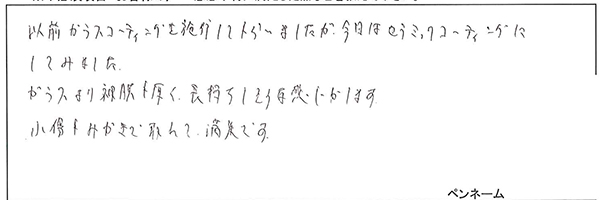 以前ガラスコーティングを施行してもらいましたが、今回はセラミックコーティングに
してみました。
ガラスより被膜も厚く、長持ちしそうな感じがします。
小傷もみがきで取れて、満足です。
ペンネーム